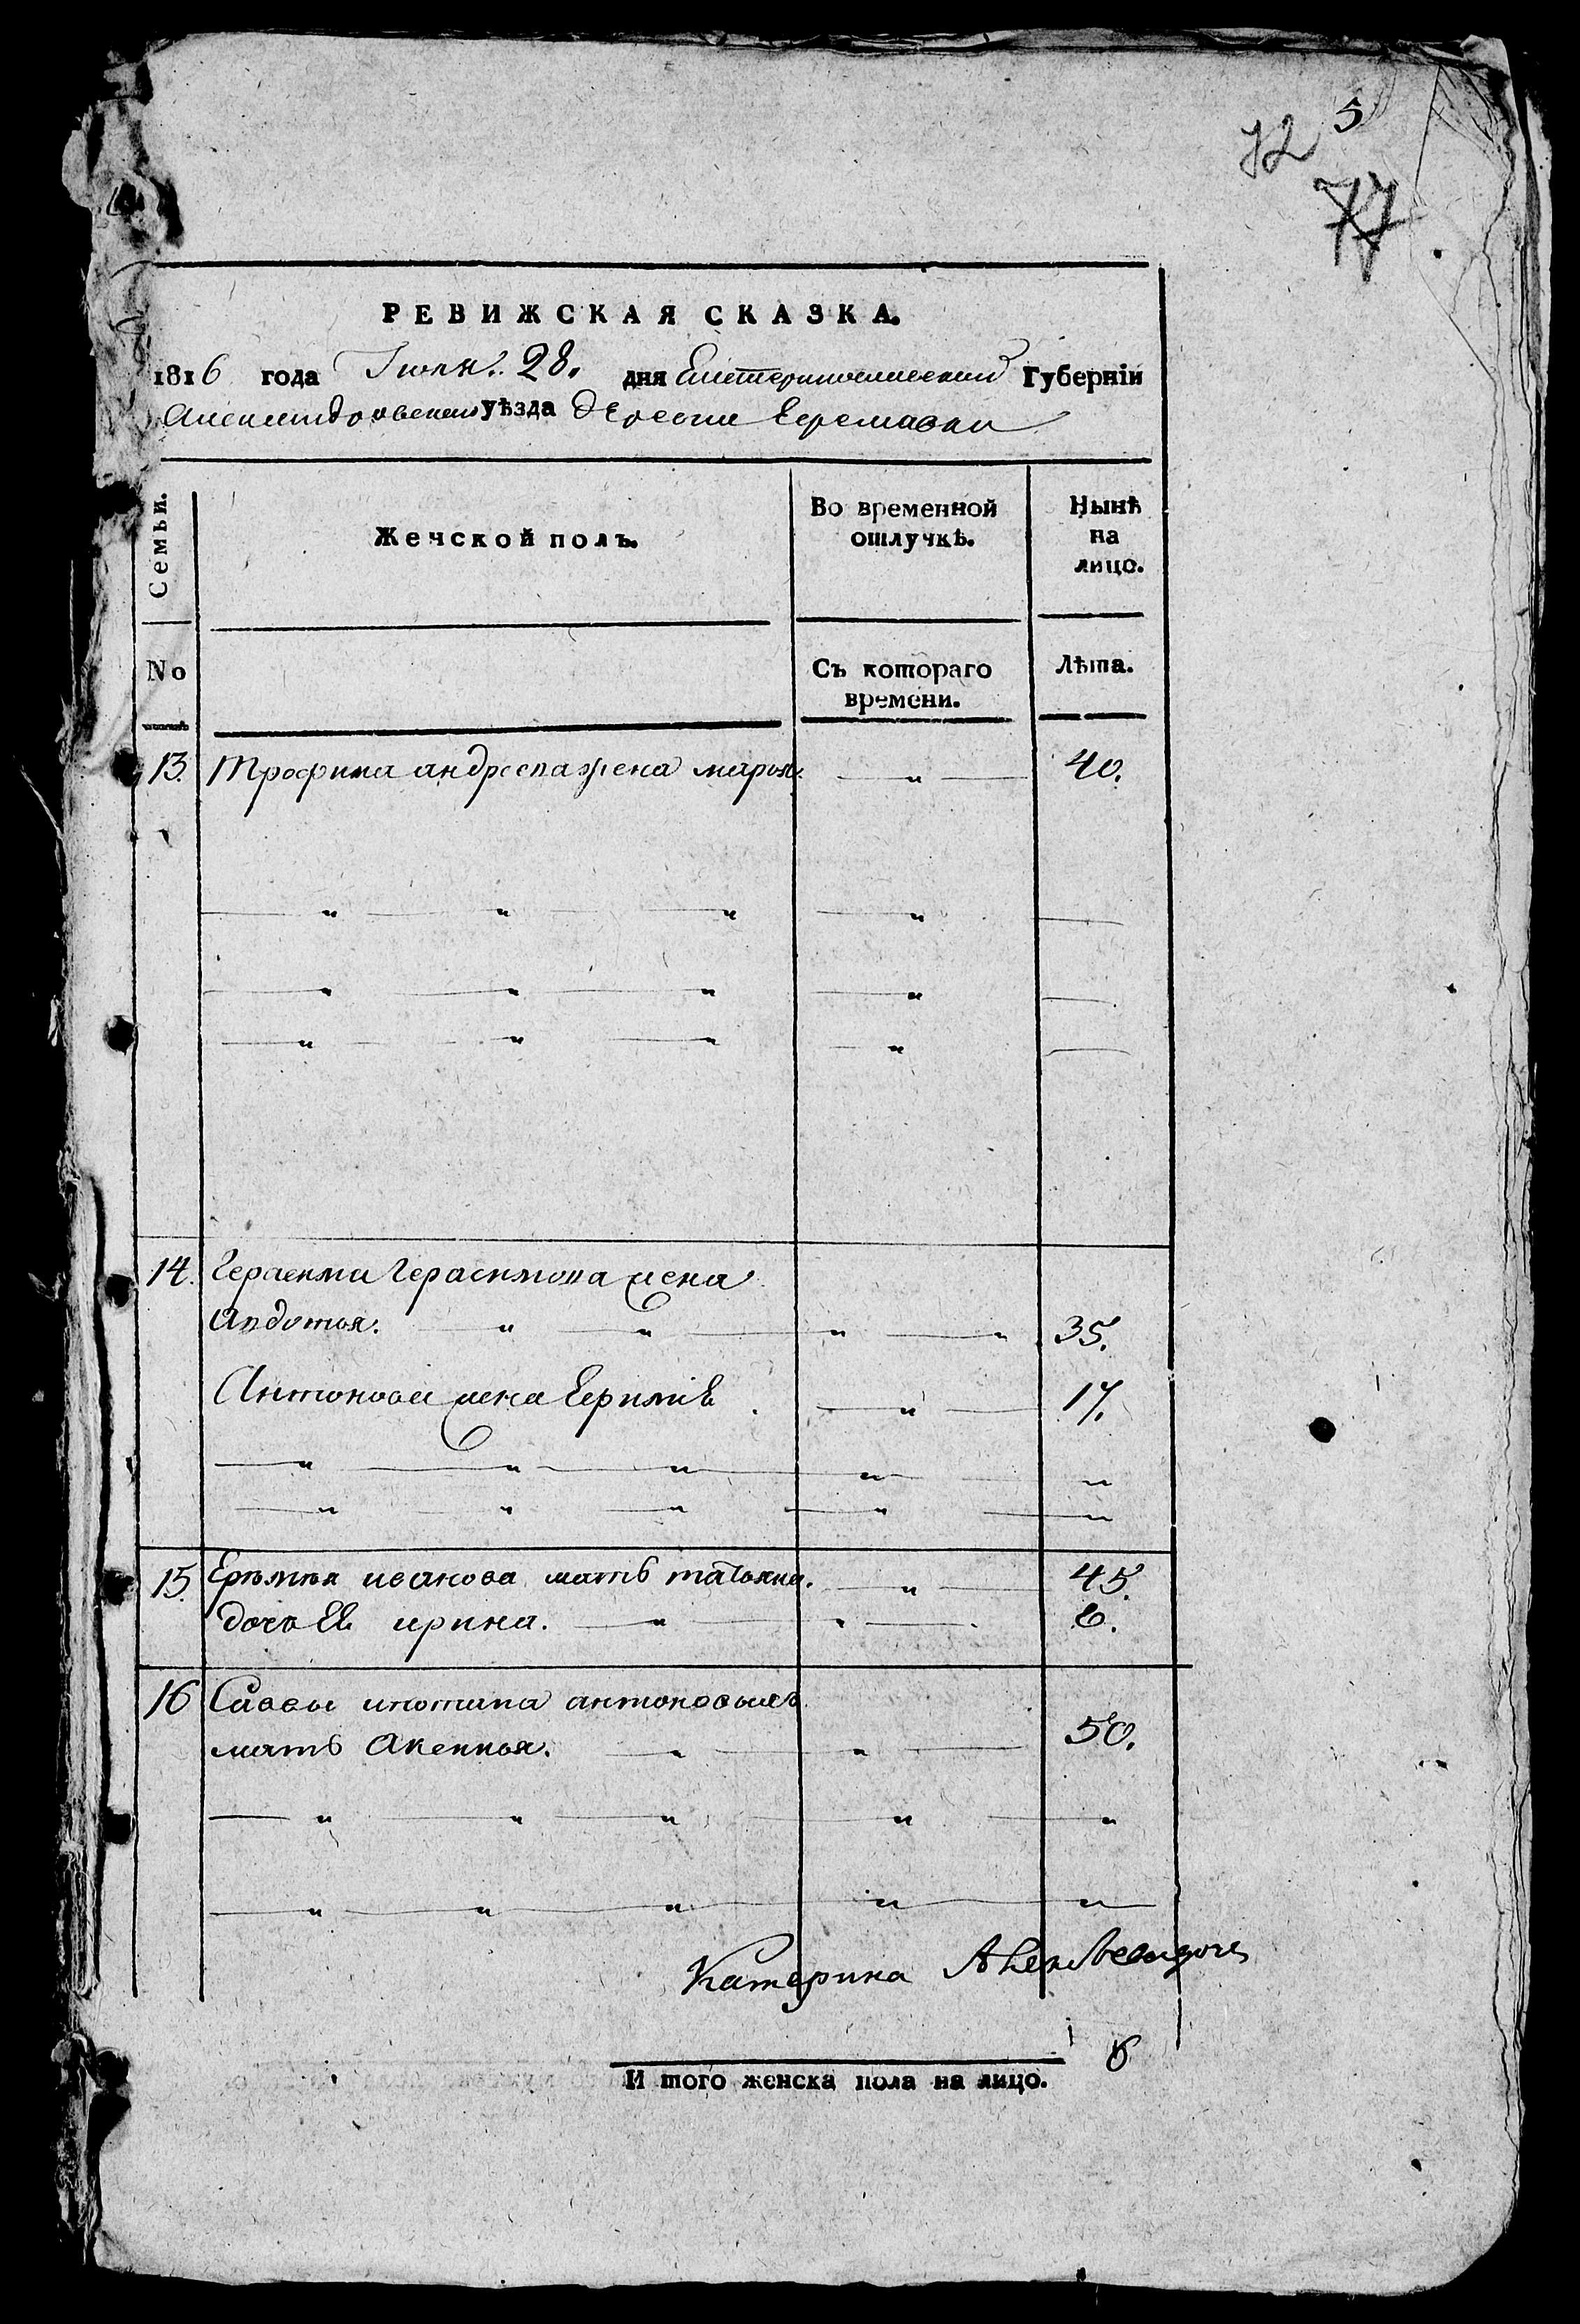 5
72
77
РЕВИЖСКАЯ СКАЗКА.
1816 года Июня. 28. дня Екатеринославской Губерніи
Александровскаго уѣзда деревни Еремовки
Семьи. Женской полъ. Во временной отлучкѣ. Нынѣ на лицо.
No Съ котораго времени. Лѣта.
13. Трофима андреева жена марья. — „ — 40.
— „ — „ — „ — „ —
— „ — „ — „ — „ —
— „ — „ — „ — „ —
14. Герасима Герасимова жена
Авдотья. — „ — „ — „ — „ 35.
Антонова жена — „ — 17.
— „ — „ — „ — „ — „
— „ — „ — „ — „ — „
15. Еремея иванова мать татьяна. — „ — 45.
дочь Ее ирина. — „ — „ — 6.
16 Саввы ипотапа антоновыхъ
мать Аксинья. — „ — „ — 50.
— „ — „ — „ — „ — „
— „ — „ — „ — „ — „
Катерина
6
И того женска пола на лицо.